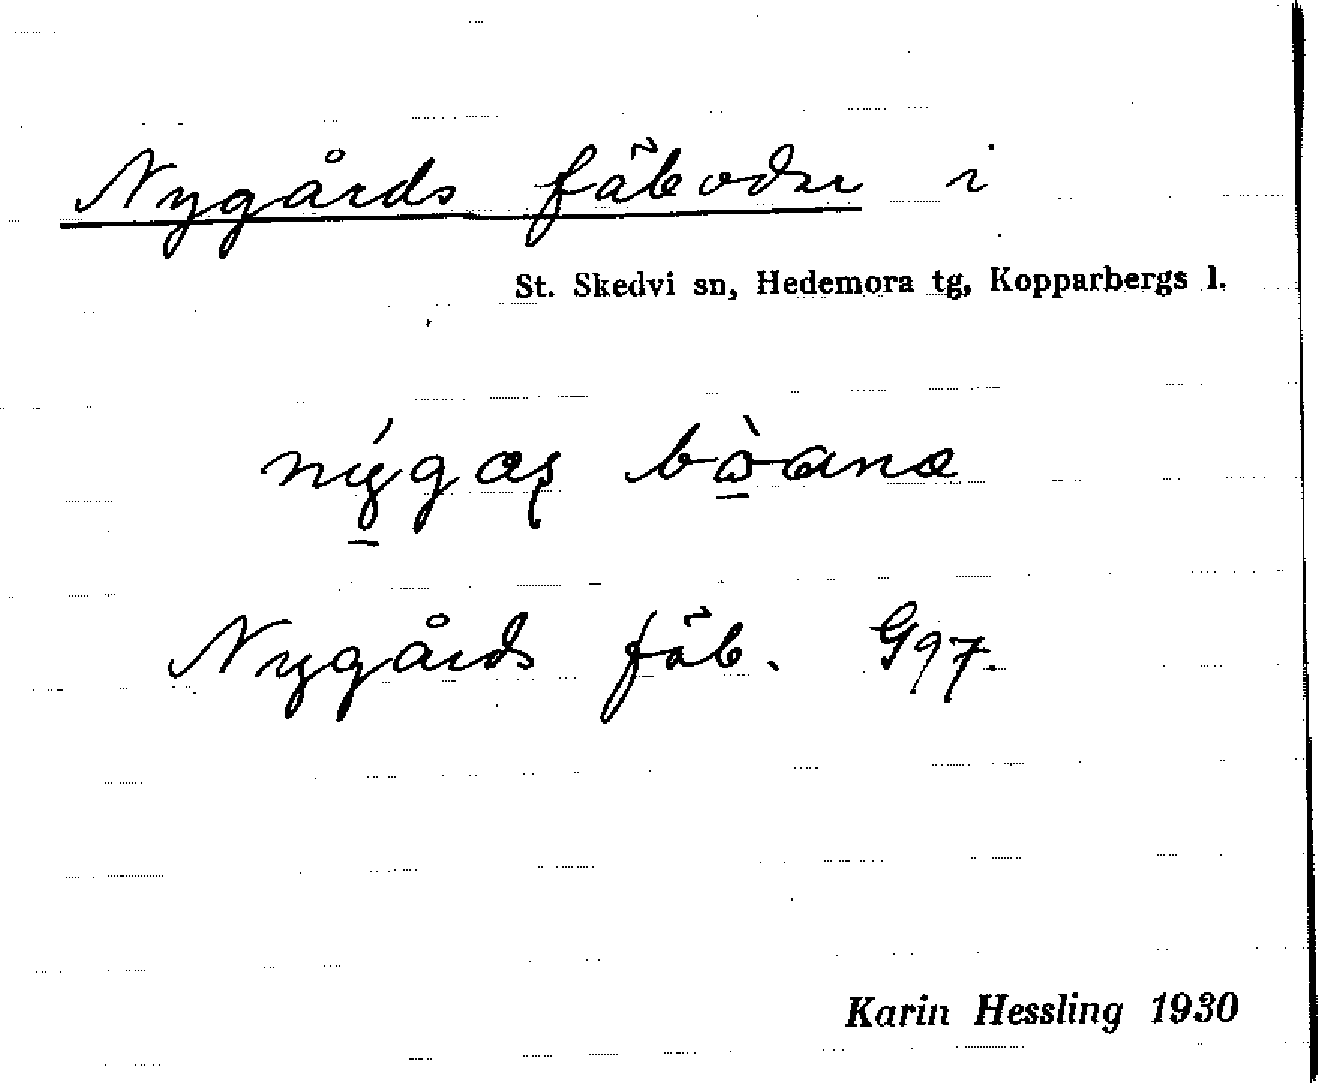 Nygårds fäbodar i
St. Skedvi sn, Hedemora tg, Kopparbergs l.
Nygårds fäb. G97.
Karin Hessling 1930